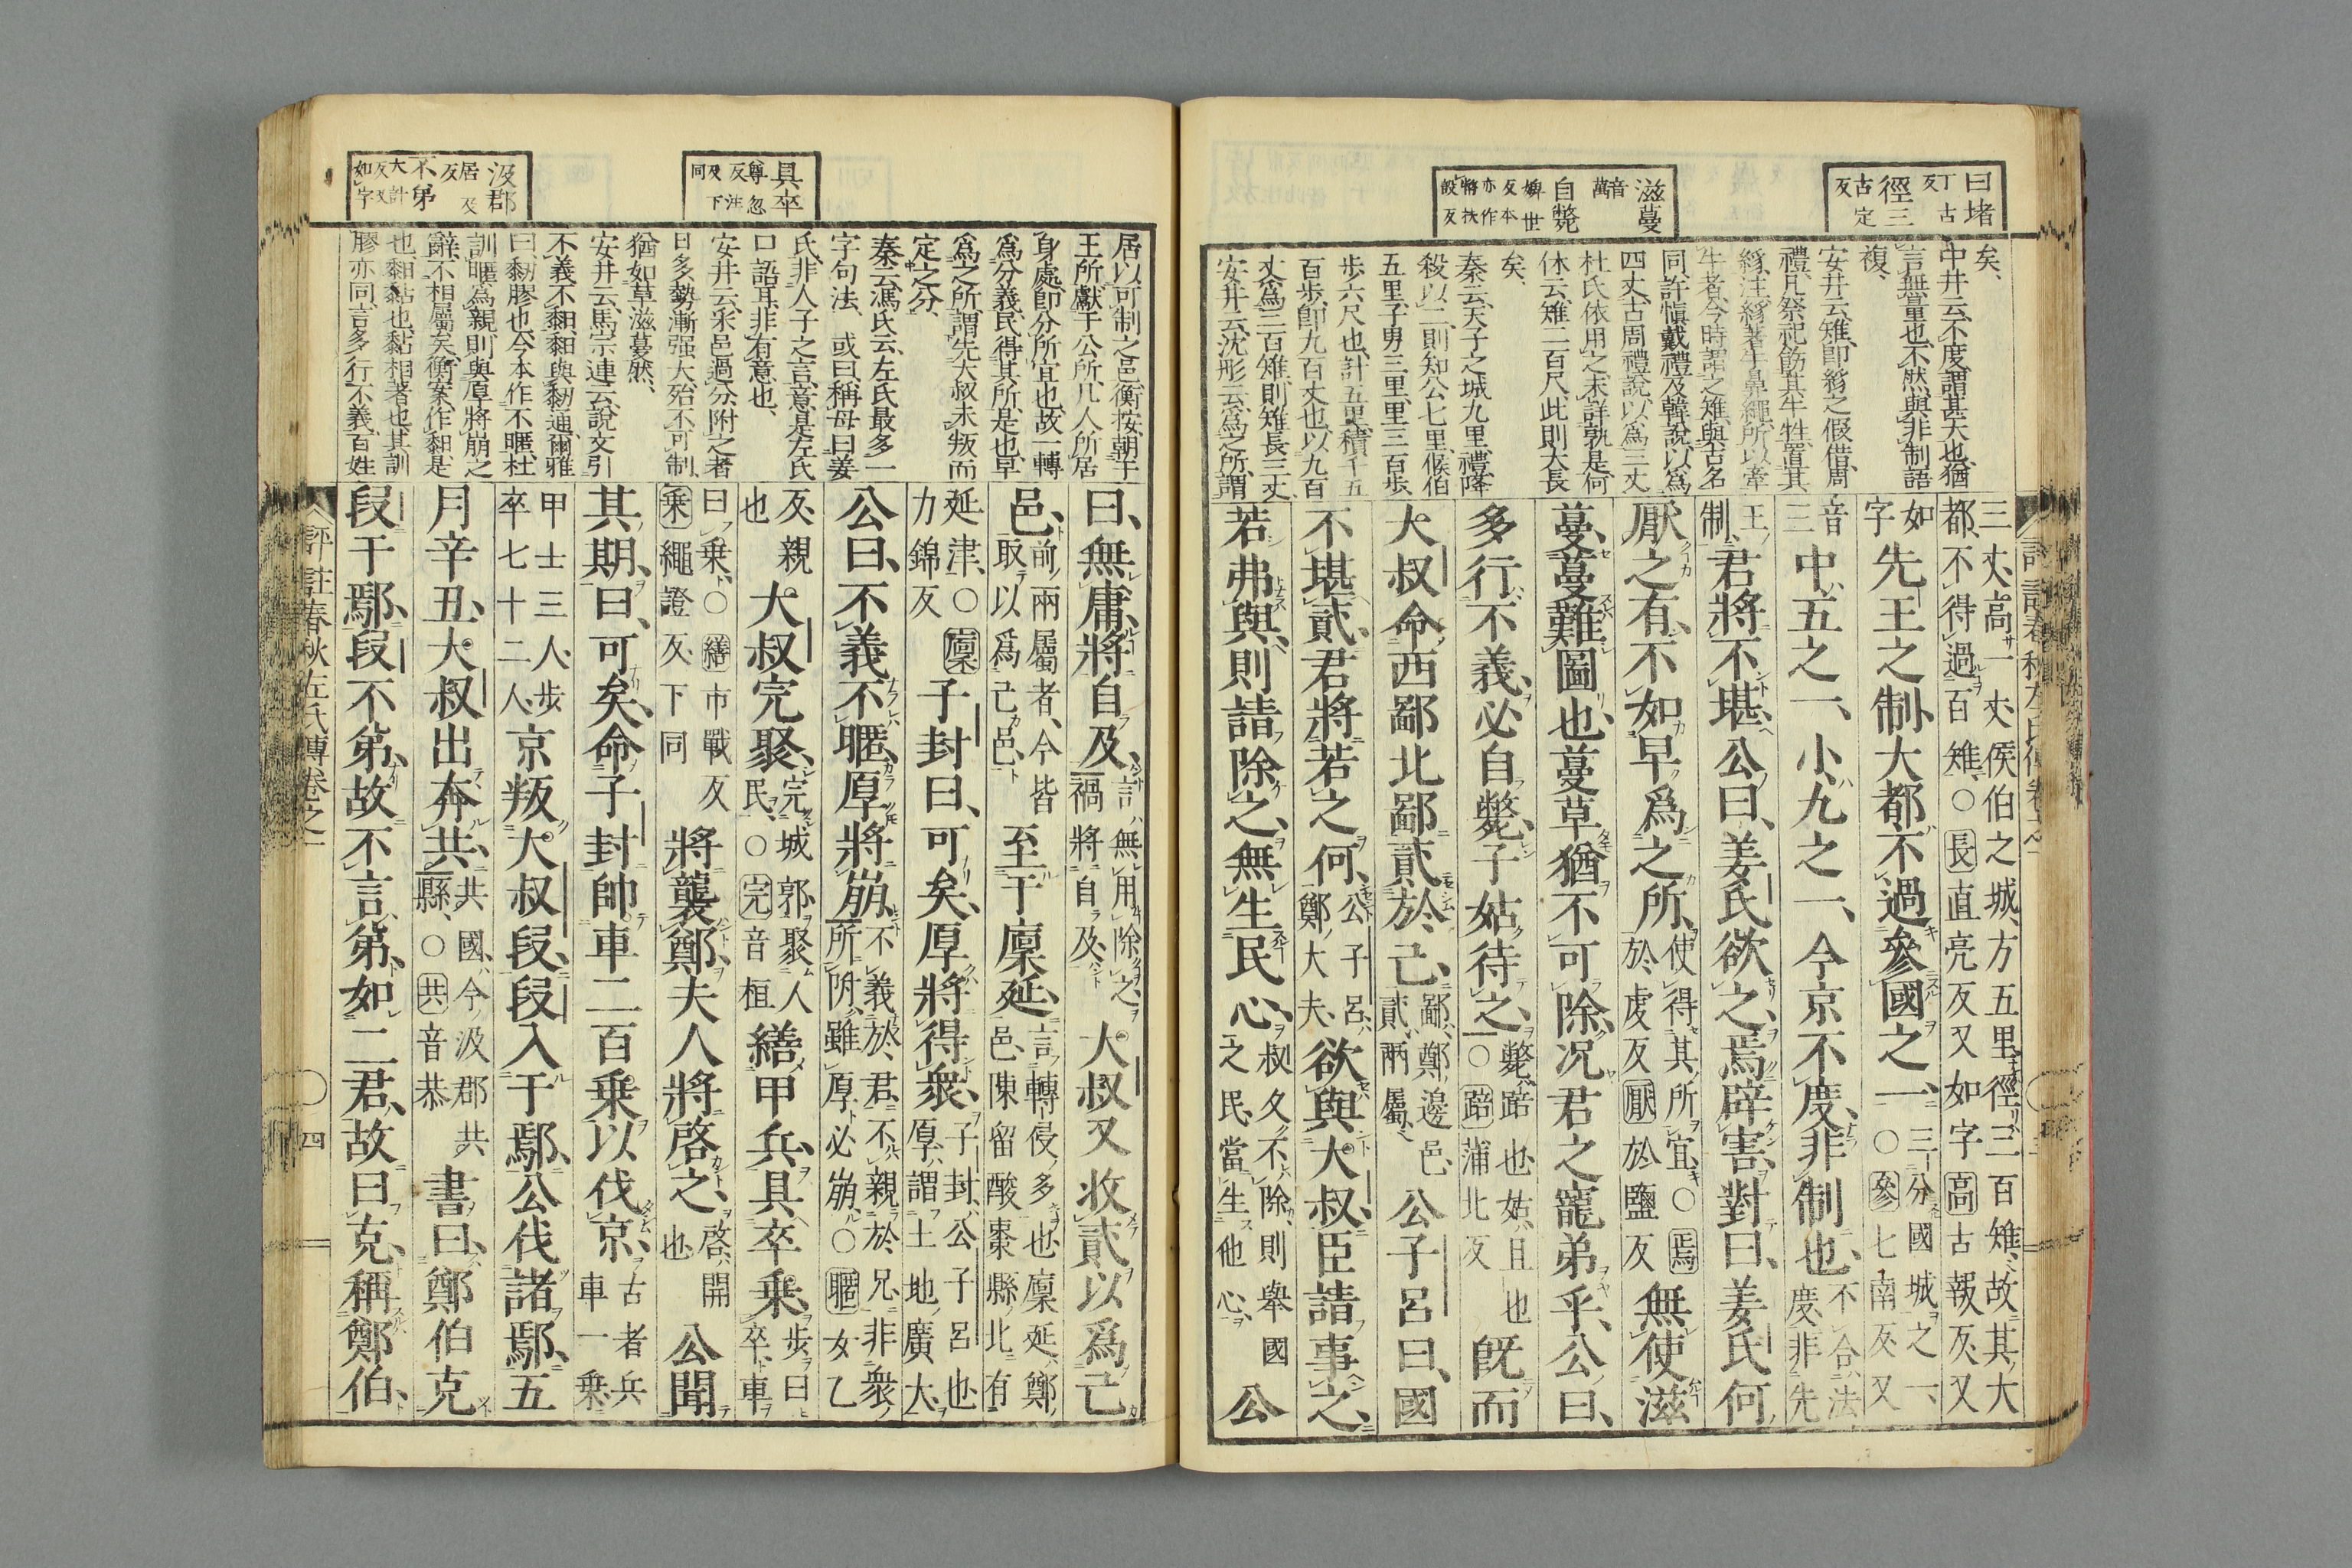 曰堵丁古反
徑三古定反
滋蔓音萬
自斃婢世反本亦作
矣、
中井云、不度謂甚大也、猶
言無量也、不然、與非制語
複、
安井云、雉、卽緣之假借、周
禮、凡祭祀、飭其牛牲、置其
牛者、今時謂之雉、與古名
同、許愼戴禮及韓說、以爲
四丈、古周禮說、以爲三丈
杜氏依用之、未詳孰是、何
休云、雉二百尺、此則大長
矣、
秦云、天子之城九里、禮降
殺以二、則知公七里、侯伯
五里、子男三里、里三百步、
步六尺也、計五里、積千五
百步、卽九百丈也、以九百
丈爲三百雉、則雉長三丈、
安井云、沈彤云、爲之所、謂
三丈、高一丈、侯伯之城、方五里、徑三百雉、故其大
都、不得過百雉、○長直亮反又如字高古報反、又
如字先王之制、大都不過參國之一、三分國城之一、○參七南反又
音三中五之一、小九之一、今京不度、非制也、不合法度、非先
王制、君將不堪、公曰、姜氏欲之、焉辟害、對曰、姜氏何
厭之有、不如早爲之所、使得其所宜、○焉於虔反厭於鹽反無使滋
蔓、蔓難圖也、蔓草猶不可除、況君之寵弟乎、公曰、
多行不義、必自斃、子姑待之、斃、踣也、姑、且也○踣蒲北反旣而
大叔命西鄙北鄙貳於己、鄙、鄭邊邑、貳、兩屬、公子呂曰、國
不堪貳、君將若之何、公子呂、鄭大夫、欲與大叔、臣請事之、
若弗與、則請除之、無生民心、叔久不除、則舉國之民、當生他心、公
具卒尊忽反注及下同
汲郡居及反
不弟大計反又如字
居以可制之邑、衡按、朝于
王所、獻于公所、凡人所居
身處卽分所宜也、故一轉
爲分義、民得其所是也、早
爲之所、謂先大叔未叛而
定之分、
秦云、馮氏云、左氏最多一
字句法、或曰、稱母曰姜
氏、非人子之言、意是左氏
口語耳、非有意也、
安井云、采邑過分、附之者
日多、勢漸强大、殆不可制、
猶如草滋蔓然、
安井云、馬宗連云、說文引
不義不䵑、䵑與黏通、爾雅
曰、黏膠也、今本作不暱、杜
訓暱爲親、則與厚將崩之
辭、不相屬矣、衡案、作䵑是
也、䵑黏也、黏相著也、其訓
膠亦同、言多行不義、百姓
曰、無庸、將自及、言無用除之、禍將自及、大叔又收貳以爲己
邑、前兩屬者、今皆取以爲己邑、至于廩延、言轉侵多也、廩延、鄭邑、陳留酸棗縣北有
延津、○廩力錦反子封曰、可矣、厚將得衆、子封、公子呂也、厚、謂土地廣大、
公曰、不義不暱、厚將崩、不義於君、不親於兄、非衆所附、雖厚必崩、○暱女乙
反、親也大叔完聚、完城郭、聚人民、○完音桓繕甲兵、具卒乘、步曰卒、車
曰乘、○繕市戰反乘繩證反、下同將襲鄭、夫人將啓之、啓、開也、公聞
其期、曰、可矣、命子封帥車二百乘以伐京、古者兵車一乘、
甲士三人、步卒七十二人、京叛大叔段、段入于鄢、公伐諸鄢、五
月辛丑、大叔出奔共、共國、今汲郡共縣、○共音恭書曰、鄭伯克
段于鄢、段不弟、故不言弟、如二君、故曰克、稱鄭伯、
評註春秋左氏傳卷之一　四